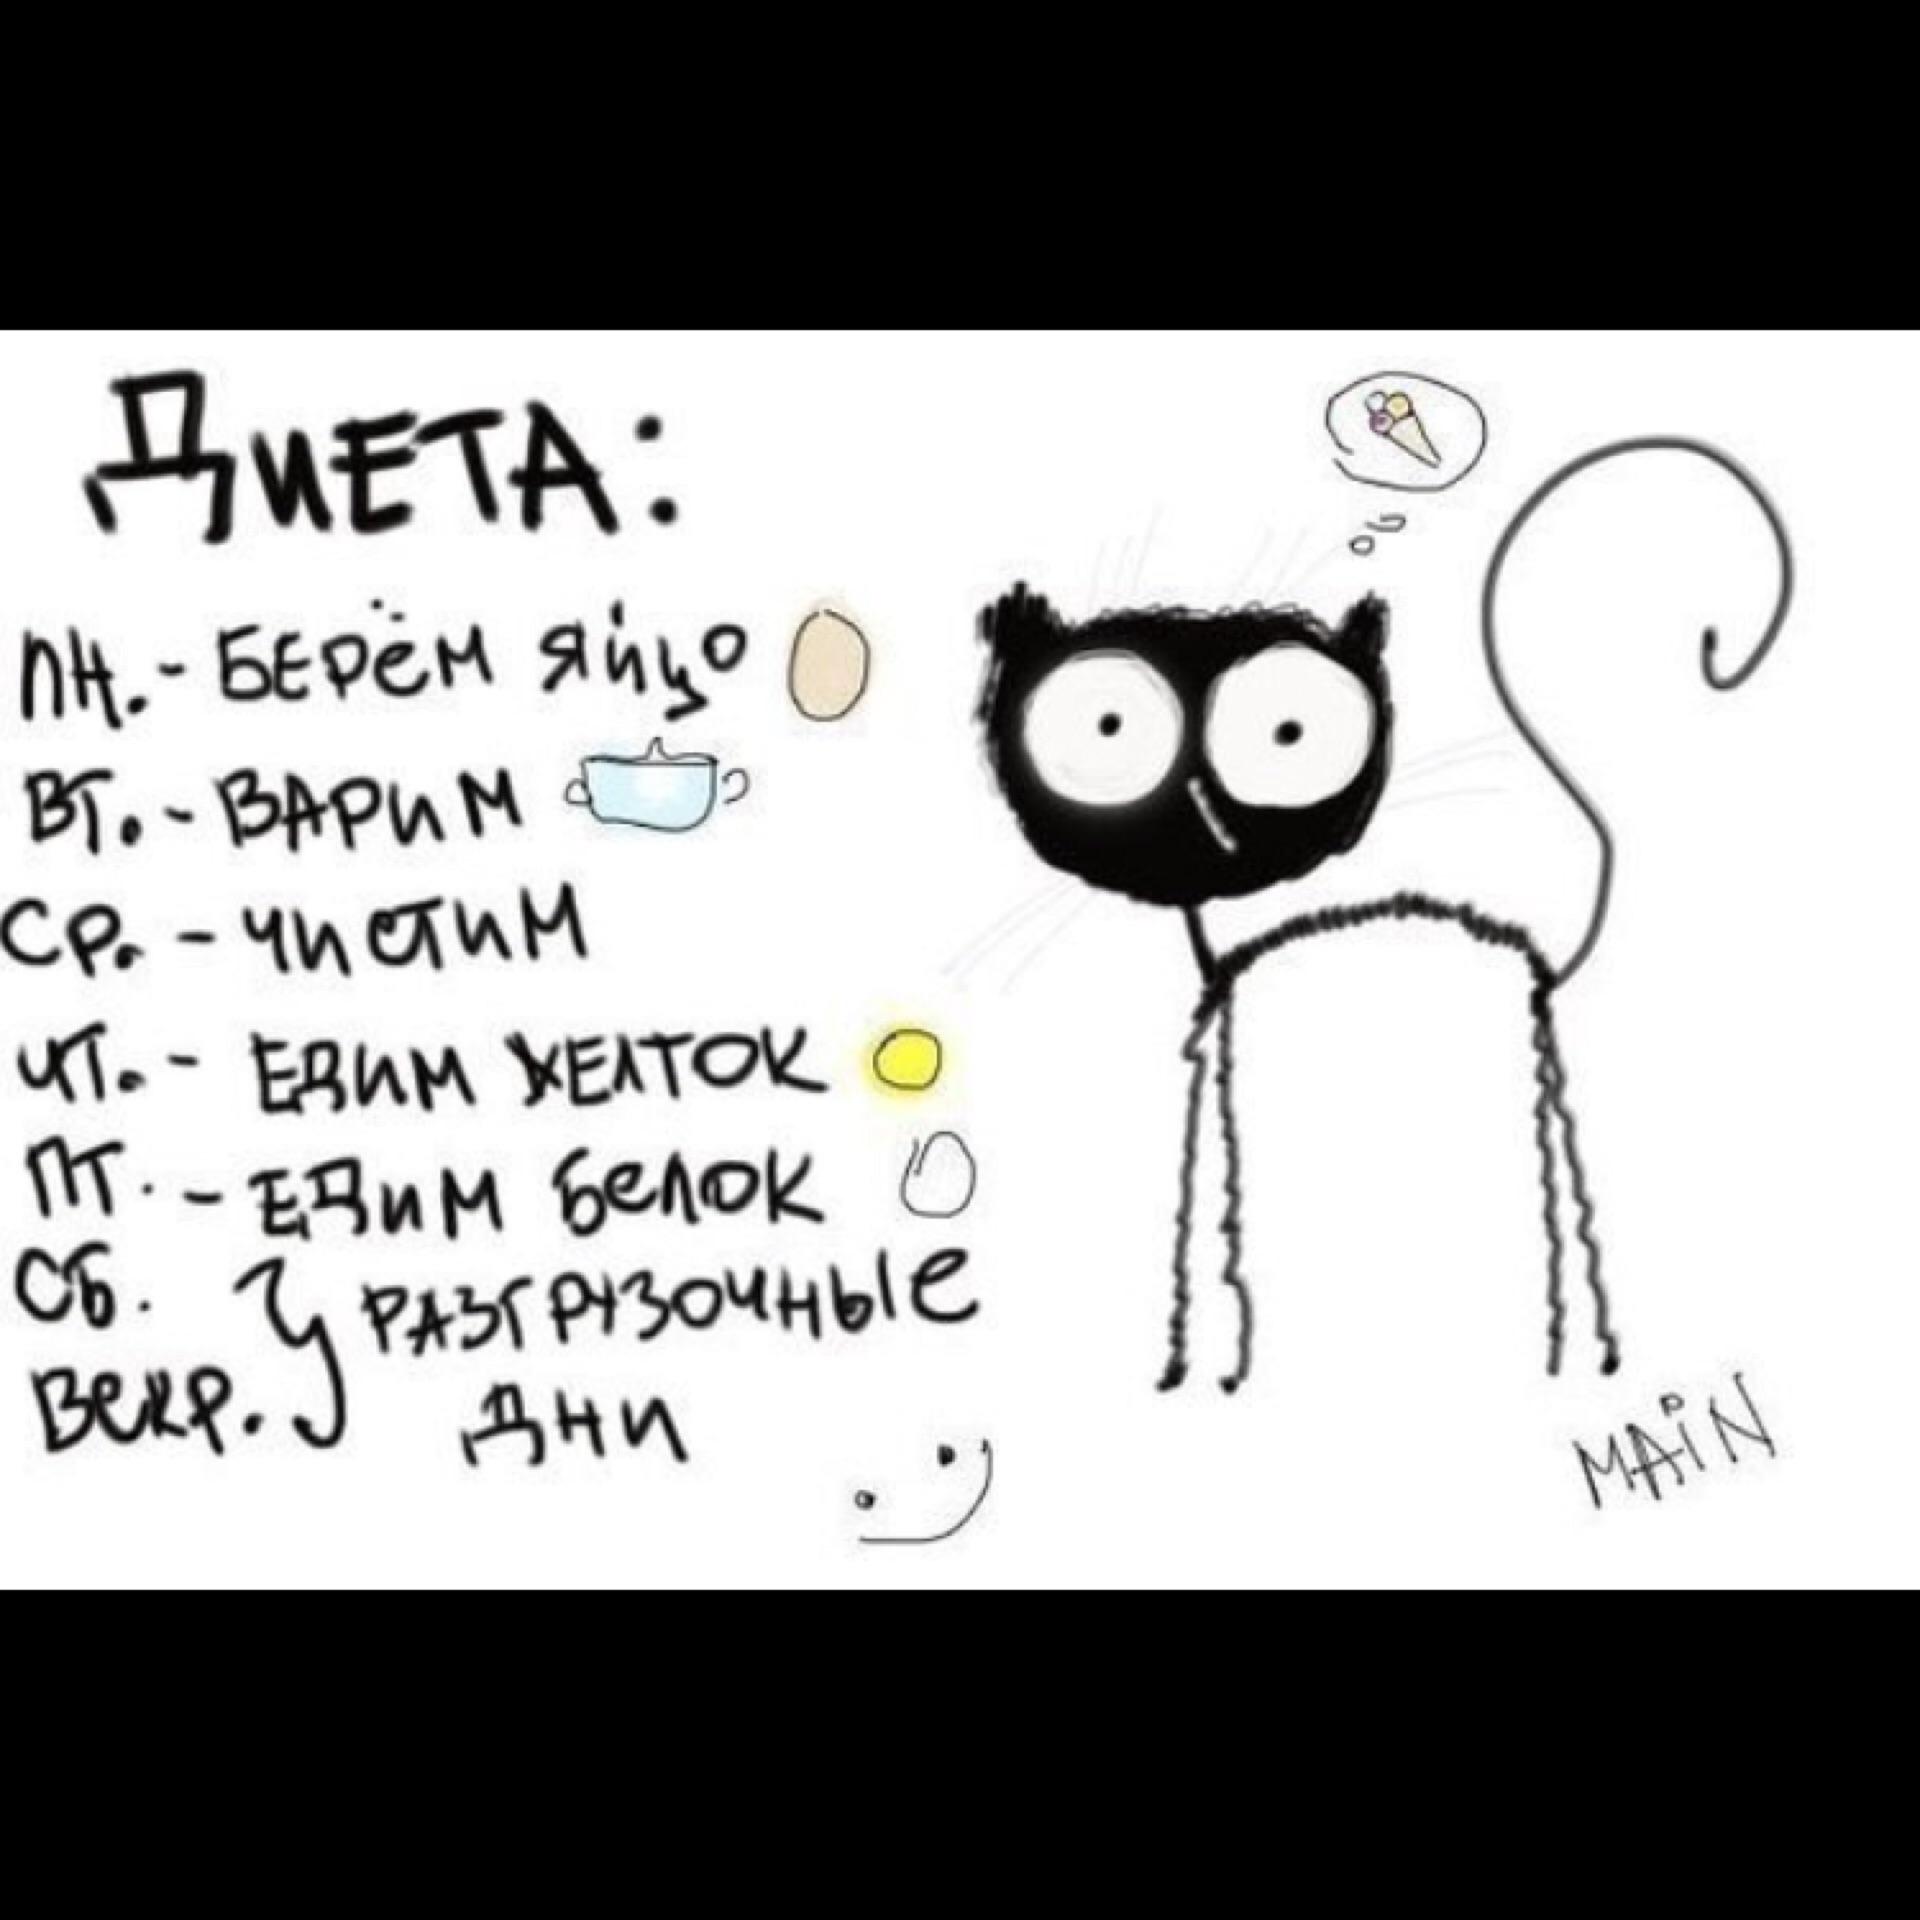 ДИЕТА:
ПН. - БЕРЁМ ЯЙЦО
ВТ. - ВАРИМ
СР. - ЧИСТИМ
ЧТ. - ЕДИМ ЖЕЛТОК
ПТ. - ЕДИМ БЕЛОК
СБ. } РАЗГРУЗОЧНЫЕ
ВСКР. ДНИ
MAiN